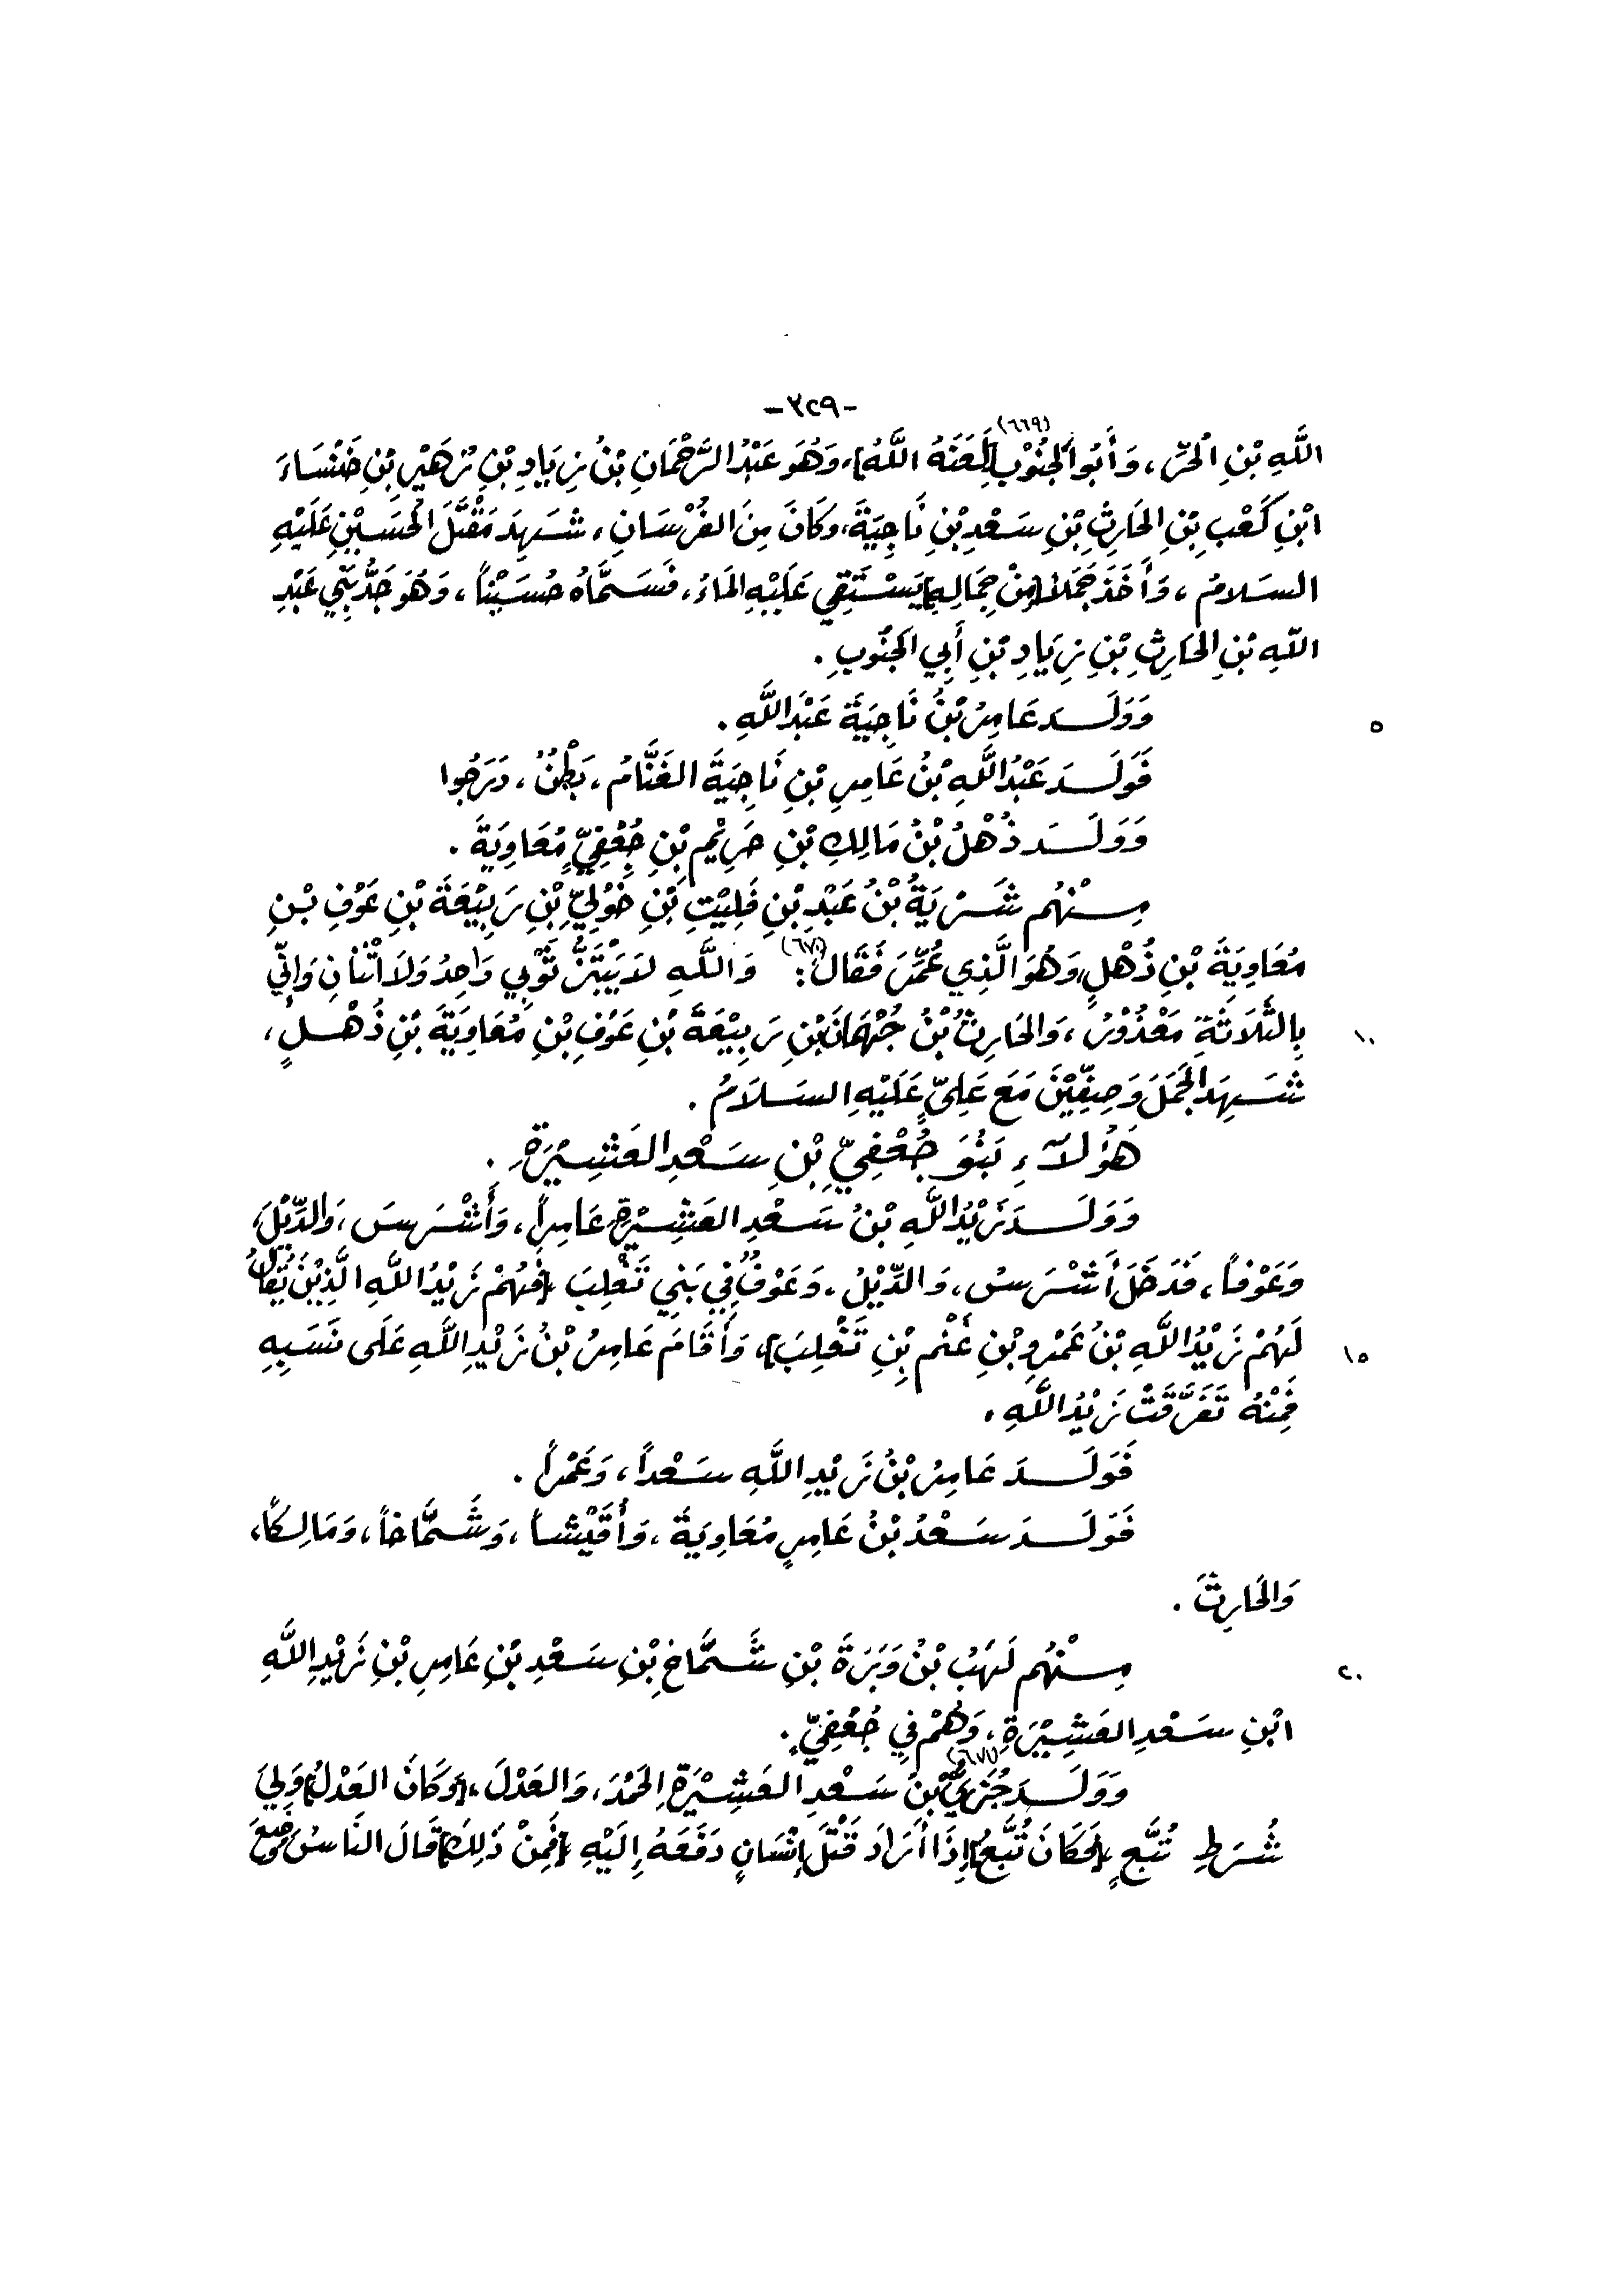 -٣٢٩-
اللَّهِ بْنِ الحُرِّ، وَأَبُو الجَنُوْبِ (٦٦٩) [لَعَنَهُ اللَّهُ]، وَهُوَ عَبْدُ الرَّحْمَانِ بْنُ زِيَادِ بْنِ زُهَيْرِ بْنِ خَنْسَاءَ
ابْنِ كَعْبِ بْنِ الحَارِثِ بْنِ سَعْدِ بْنِ نَاجِيَةَ، وَكَانَ مِنَ الفُرْسَانِ، شَهِدَ مَقْتَلَ الحُسَيْنِ عَلَيْهِ
السَلامُ، وَأَخَذَ جَمَلاً [مِنْ جِمَالِهِ] يَسْتَقِي عَلَيْهِ المَاءَ، فَسَمَّاهُ حُسَيْناً، وَهُوَ جَدُّ بَنِي عَبْدِ
اللَّهِ بْنِ الحَارِثِ بْنِ زِيَادِ بْنِ أَبِي الجَنُوبِ.
وَوَلَدَ عَامِرُ بْنُ نَاجِيَةَ عَبْدَ اللَّهِ. ٥
فَوَلَدَ عَبْدُ اللَّهِ بْنُ عَامِرِ بْنِ نَاجِيَةَ الغَنَّامَ، بَطْنٌ، دَرَجُوا
وَوَلَدَ ذُهْلُ بْنُ مَالِكِ بْنِ حَرِيْمِ بْنِ جُعْفِيٍّ مُعَاوِيَةَ.
مِنْهُم شَرْيَةُ بْنُ عَبْدِ بْنِ قَلِيْتِ بْنِ خَوْلِيِّ بْنِ رَبِيْعَةَ بْنِ عَوْفِ بْنِ
مُعَاوِيَةَ بْنِ ذُهْلٍ، وَهُوَ الَّذِي عُمِّرَ فَقَالَ (٦٧٠): وَاللَّهِ لاَ يَبْتَزُّ ثَوْبِي وَاحِدٌ وَلاَ اثْنَانِ وَإِنِّي
بِالثَّلَاثَةِ مَعْذُوْرٌ، وَالحَارِثُ بْنُ جُمْهَانَ بْنِ رَبِيْعَةَ بْنِ عَوْفِ بْنِ مُعَاوِيَةَ بْنِ ذُهْلٍ، ١٠
شَهِدَ الجَمَلَ وَصِفِّيْنَ مَعَ عَلِيٍّ عَلَيْهِ السَلَامُ.
هَؤُلَاءِ بَنُو جُعْفِيِّ بْنِ سَعْدِ العَشِيْرَةِ.
وَوَلَدَ زَيْدُ اللَّهِ بْنُ سَعْدِ العَشِيْرَةِ عَامِراً، وَأَشْرَسَ، وَالدِّيْلَ،
وَعَوْفاً، فَدَخَلَ أَشْرَسُ، وَالدِّيْلُ، وَعَوْفٌ فِي بَنِي تَغْلِبَ [فَهُمْ زَيْدُ اللَّهِ الَّذِيْنَ يُقَالُ
لَهُمْ زَيْدُ اللَّهِ بْنُ عَمْرِو بْنِ غَنْمِ بْنِ تَغْلِبَ]، وَأَقَامَ عَامِرُ بْنُ زَيْدِ اللَّهِ عَلَى نَسَبِهِ ١٥
فَمِنْهُ تَفَرَّقَتْ زَيْدُ اللَّهِ.
فَوَلَدَ عَامِرُ بْنُ زَيْدِ اللَّهِ سَعْداً، وَعَمْراً.
فَوَلَدَ سَعْدُ بْنُ عَامِرٍ مُعَاوِيَةَ، وَأُقَيْشاً، وَشَمَّاخاً، وَمَالِكاً،
وَالحَارِثَ.
مِنْهُم لَهَبُ بْنُ وَبَرَةَ بْنِ شَمَّاخِ بْنِ سَعْدِ بْنِ عَامِرِ بْنِ زَيْدِ اللَّهِ ٢٠
ابْنِ سَعْدِ العَشِيْرَةِ، وَهُمْ فِي جُعْفِيٍّ.
وَوَلَدَ جُزَيُّ (٦٧١) بْنُ سَعْدِ العَشِيْرَةِ الحَمْدَ، وَالعَدْلَ، [وَكَانَ العَدْلُ] وَلِيَ
شُرَطِ تُبَّعٍ [فَكَانَ تُبَّعٌ] إِذَا أَرَادَ قَتْلَ إِنْسَانٍ دَفَعَهُ إِلَيْهِ [فَمِنْ ذَلِكَ] قَالَ النَاسُ وُضِعَ